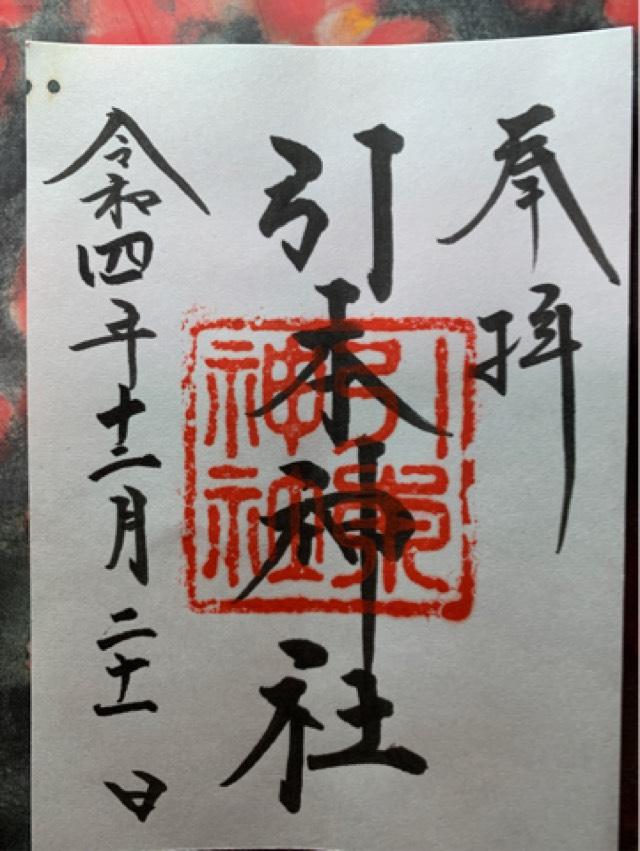 奉拝
引本神社
令和四年十二月二十一日
引
神社